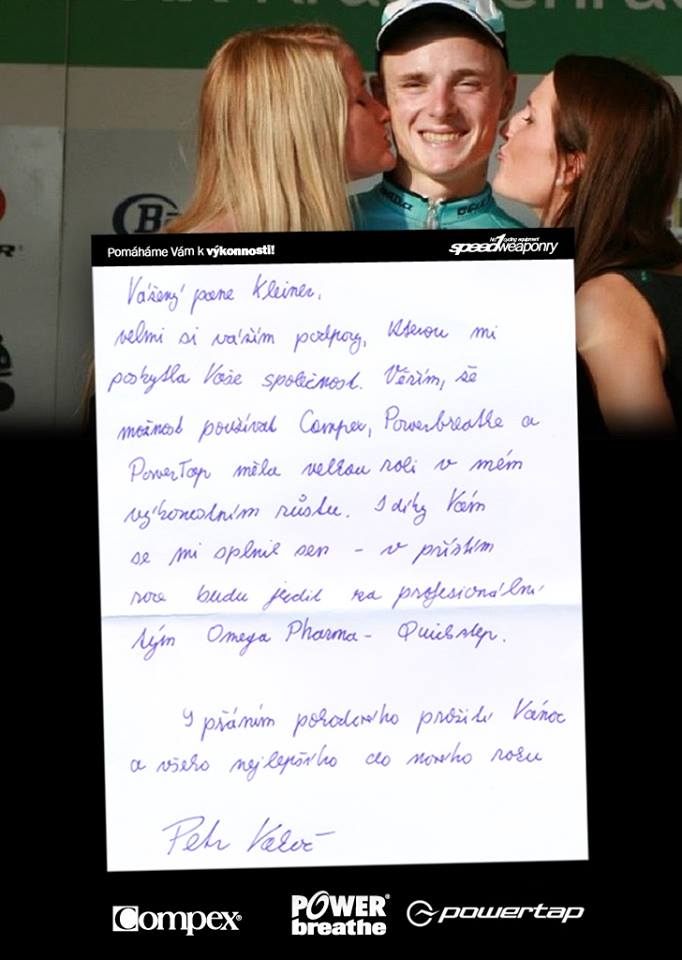 Pomáháme Vám k výkonnosti!
No.1 cycling equipment
speedweaponry
Vážený pane Kleiner,
velmi si vážím podpory, kterou mi
poskytla Vaše společnost. Věřím, že
možnost používat Compex, Powerbreathe a
PowerTap měla velkou roli v mém
výkonostním růstu. I díky Vám
se mi splnil sen – v příštím
roce budu jezdit za profesionální
tým Omega Pharma - Quickstep.
S přáním pohodového prožití Vánoc
a všeho nejlepšího do nového roku
Petr Vakoč
Compex®
POWER®
breathe
powertap